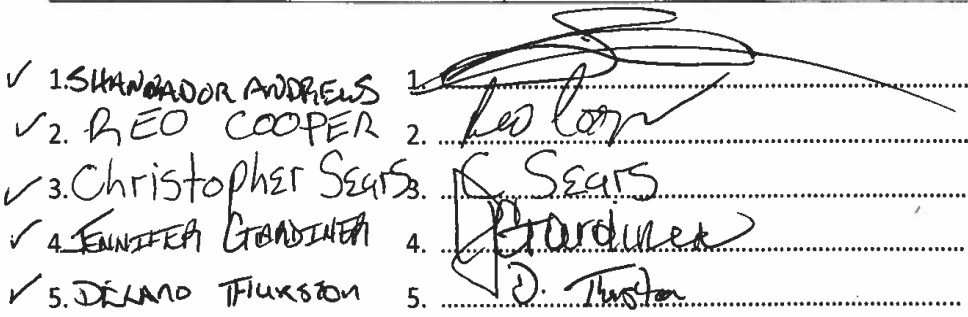 ✓ 1. SHANNADOR ANDREWS 1.
✓ 2. REO COOPER 2. Reo Coop
✓ 3. Christopher Sears 3. C. Sears
✓ 4. JENNIFER GARDINER 4. J Gardiner
✓ 5. DELANO THURSTON 5. D. Thurston